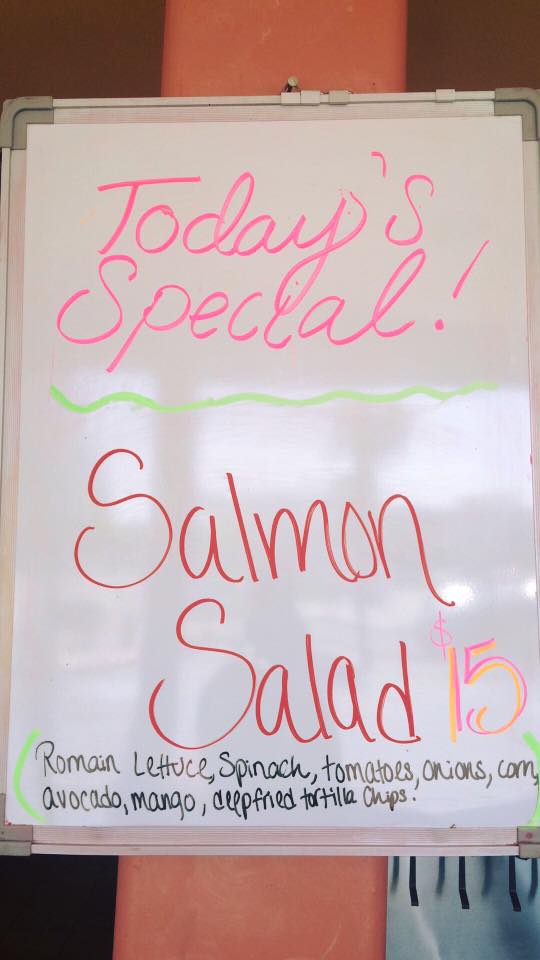 Today's
Special!
Salmon
Salad $15
(Romain Lettuce, Spinach, tomatoes, onions, corn,
avocado, mango, deepfried tortilla Chips.)